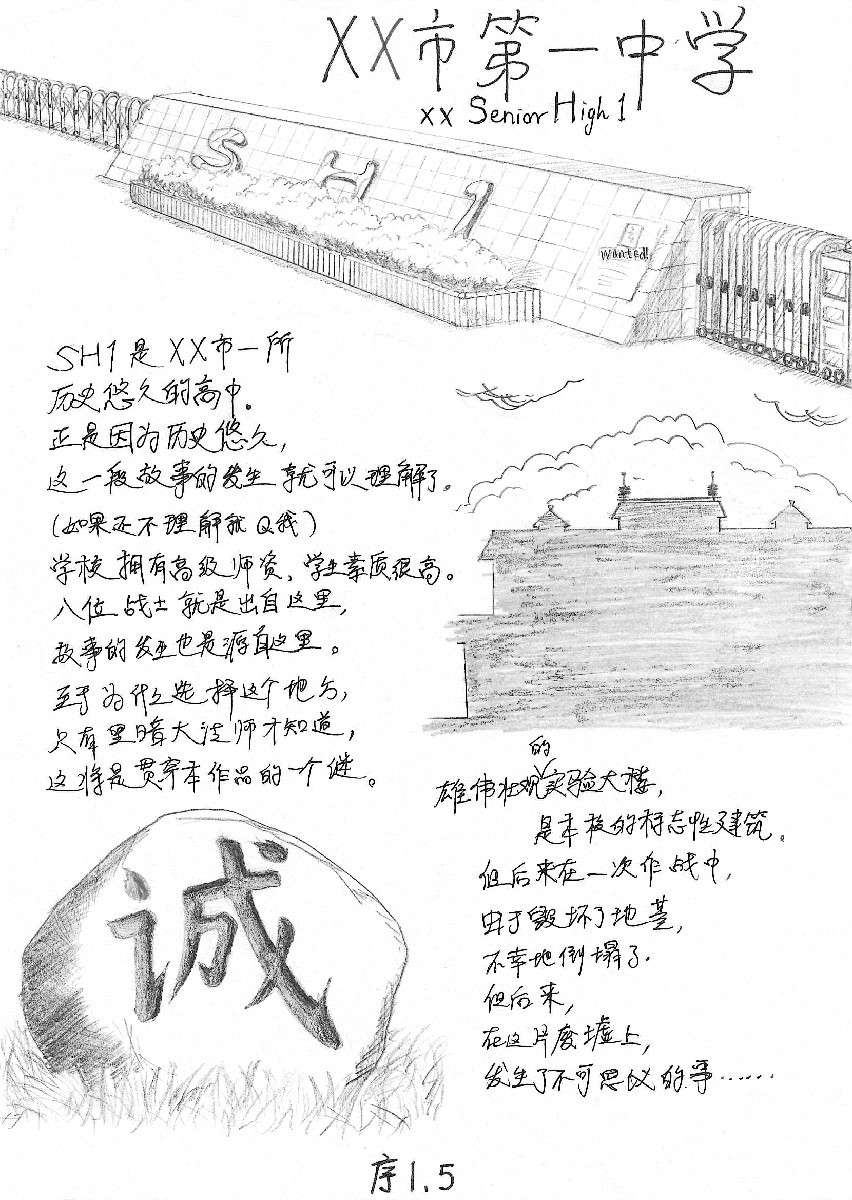 XX市第一中学
XX Senior High 1
SH1
Wanted!
SH1是XX市一所
历史悠久的高中。
正是因为历史悠久，
这一段故事的发生就可以理解了。
（如果还不理解就Q我）
学校拥有高级师资、学生素质很高。
八位战士就是出自这里，
故事的发生也是源自这里。
至于为什么选择这个地方，
只有黑暗大法师才知道，
这将是贯穿本作品的一个谜。
雄伟壮观的实验大楼，
是本校的标志性建筑。
但后来在一次作战中，
由于毁坏了地基，
不幸地倒塌了.
但后来，
在这片废墟上，
发生了不可思议的事……
诚
序1.5